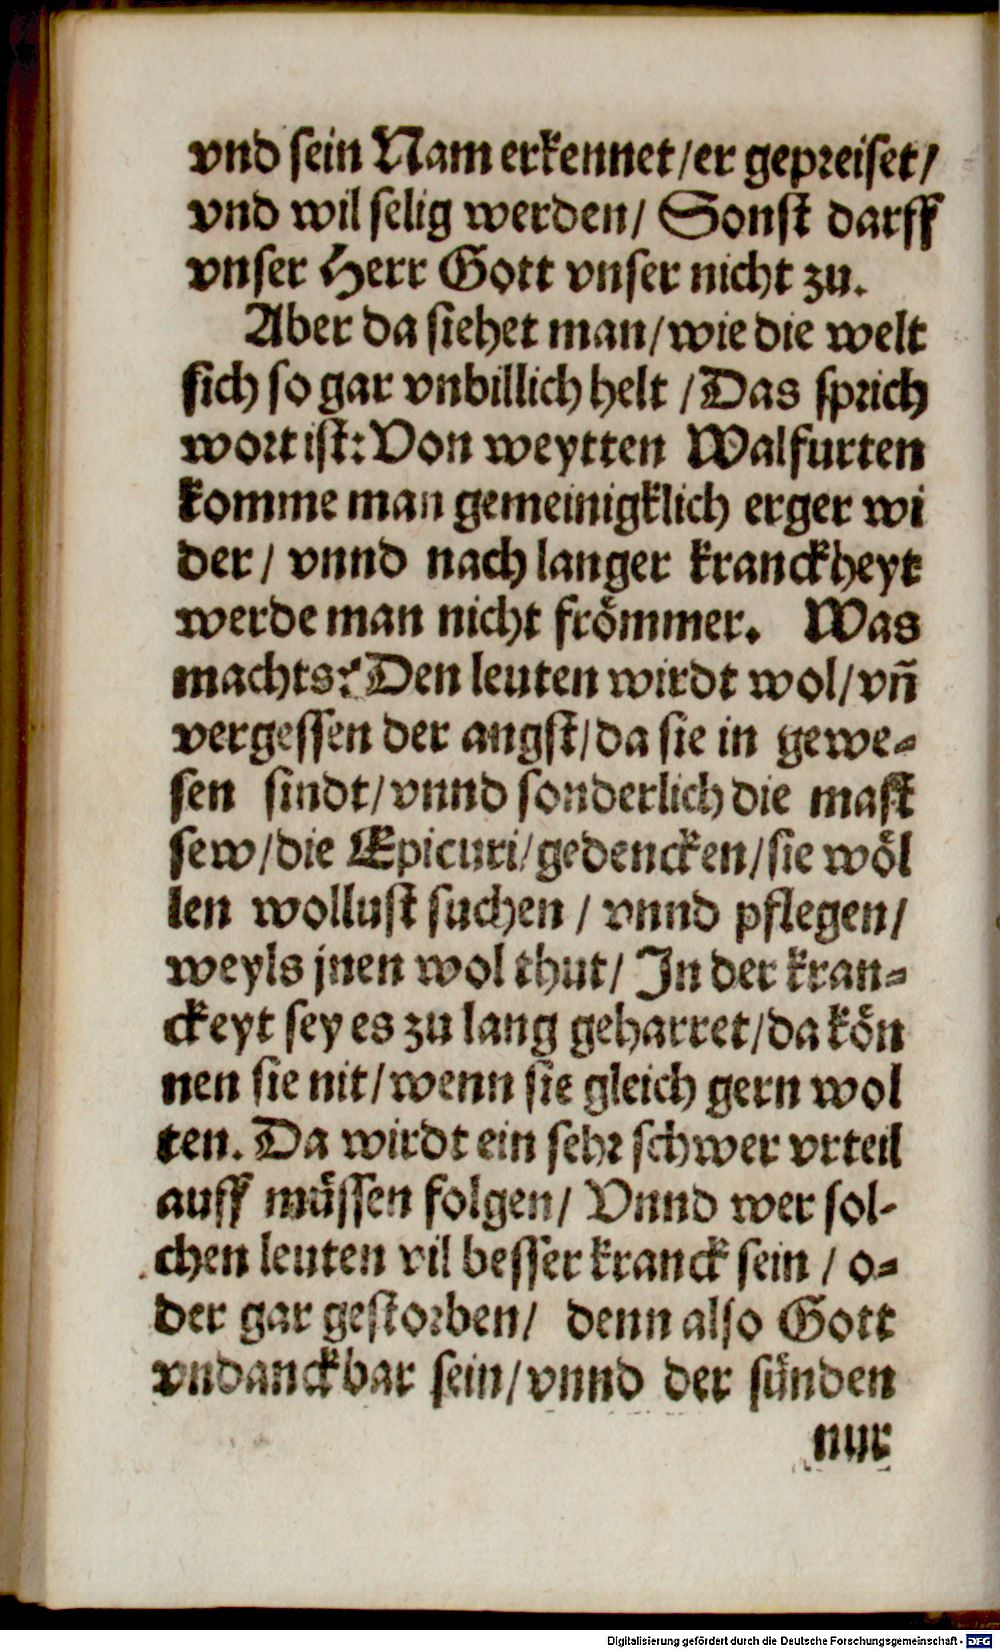 vnd sein Nam erkennet/er gepreiset/
vnd wil selig werden/ Sonst darff
vnser Herr Gott vnser nicht zu.
Aber da siehet man/wie die welt
sich so gar vnbillich helt /Das sprich
wort ist: Von weytten Walfurten
komme man gemeinigklich erger wi
der/ vnnd nach langer kranckheyt
werde man nicht frömmer. Was
machts? Den leuten wirdt wol/vn̄
vergessen der angst/da sie in gewe⸗
sen sindt/vnnd sonderlich die mast
sew/die Epicuri/gedencken/sie wöl
len wollust suchen / vnnd pflegen/
weyls jnen wol thut/ In der kran⸗
ckeyt sey es zu lang geharret/da kön
nen sie nit/wenn sie gleich gern wol
ten. Da wirdt ein sehr schwer vrteil
auff müssen folgen/ Vnnd wer sol-
chen leuten vil besser kranck sein / o⸗
der gar gestorben/ denn also Gott
vndanckbar sein/vnnd der sünden
nur
Digitalisierung gefördert durch die Deutsche Forschungsgemeinschaft - DFG